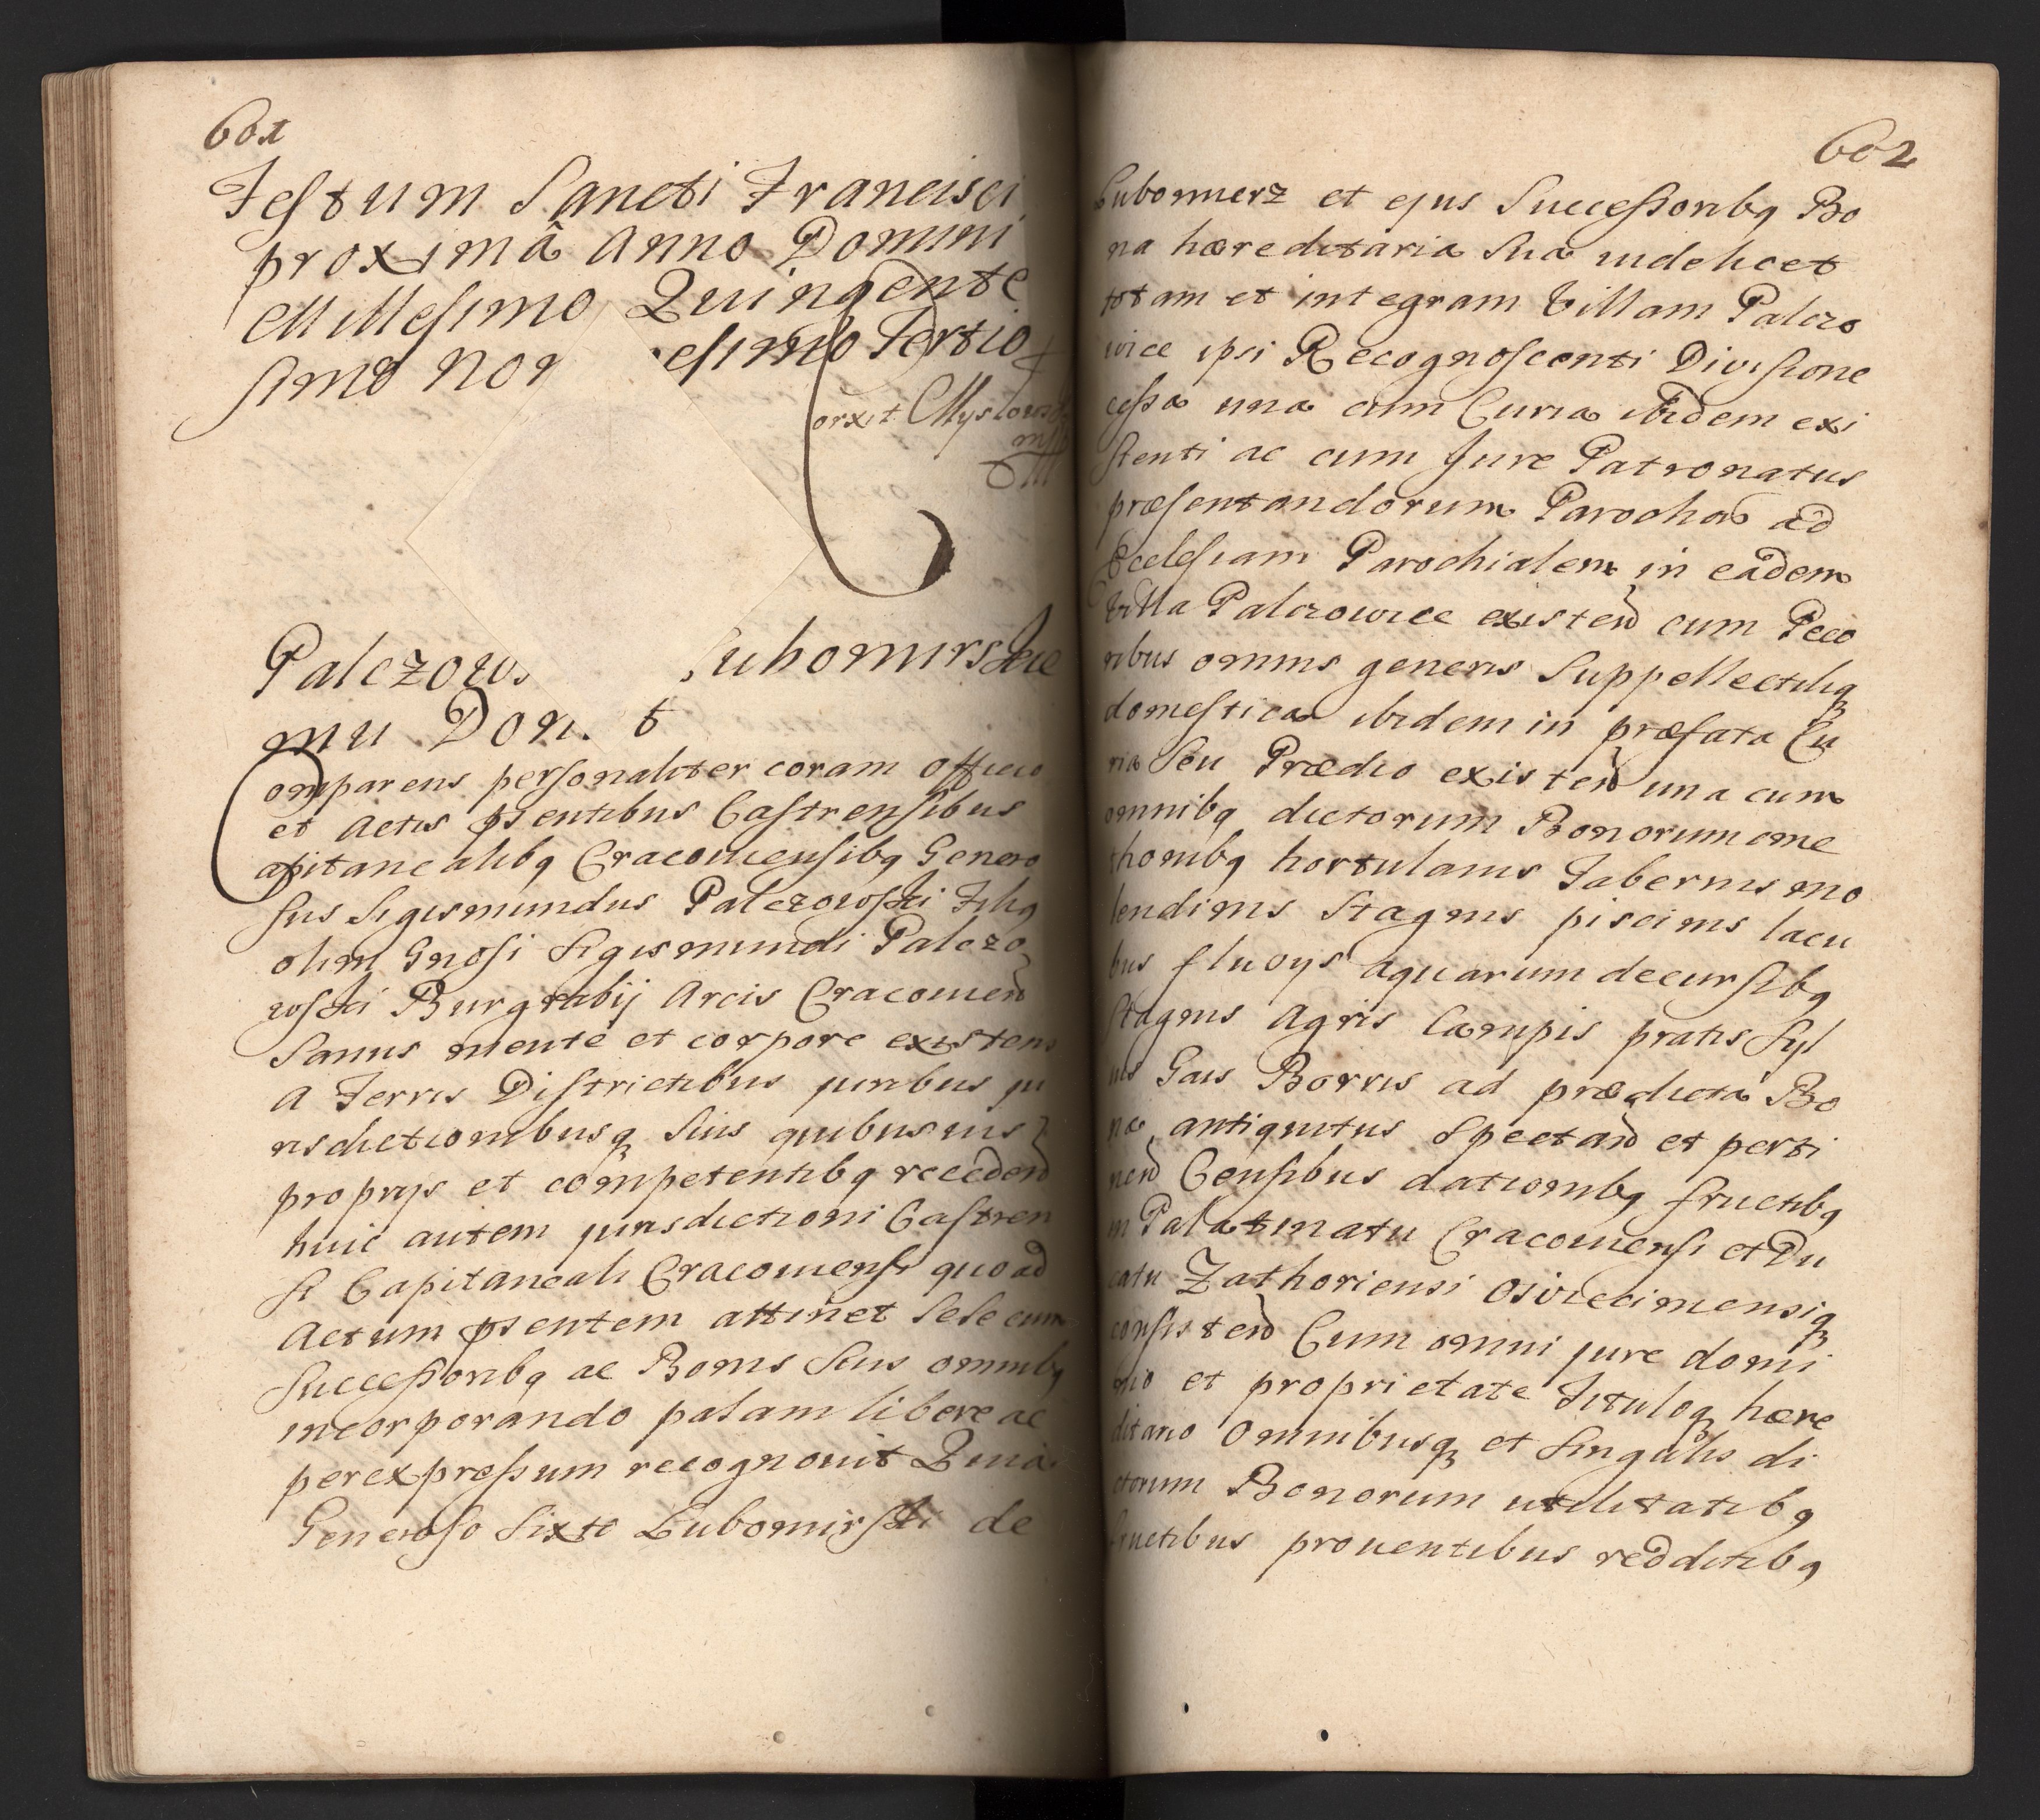 601
Festum Sancti Francisci
proximâ Anno Domini
Millesimo Quingente
simo Non esimo Tertio
orxit Myslows
mp
Palczows Luhomirskie
mu Don t
Comparens personaliter coram officio
et Actis psentibus Castrensibus
apitanealibq Cracoviensibq Genero
sus Sigismundus Palczowski Filiq
olim Gnosi Sigismundi Palczo
wski Burgrabij Arcis Cracovien
Sanus mente et corpore existens
A Terris Districtibus juribus ju
risdictionibusq suis quibusuis
proprys et competentibq receden
huic autem jurisdictioni Castren
si Capitaneali Cracoviensi quoad
Actum psentem attinet sese cum
Successoribq ac Bonis suis omnibq
incorporando palam libere ac
per expressum recognovit Quia
Generoso Sixto Lubomirski de
602
Lubomierz et ejus Successoribq Bo
na hæreditaria sua videlicet
totam et integram Villam Palczo
wice ipsi Recognoscenti Divisione
cessa una cum Curia ibidem exi
stenti ac cum Jure Patronatus
præsentandorum Parochos ad
Ecclesiam Parochialem in eadem
Villa Palczowice existen cum Peco
ribus omnis generis Suppellectiliq
domestica ibidem in præfata Cu
ria seu Prædio existen una cum
omnibq dictorum Bonorum cme
thonibq hortulanis Tabernis mo
lendinis Stagnis piscinis lacu
bus fluvys aquarum decursibq
Stagnis Agris Campis pratis Syl
uis Gais Borris ad prædicta Bo
na antiquitus Spectan et perti
nen Censibus dationibq fructibq
in Palatinatu Cracoviensi et Du
catu Zathoriensi Osviecimensiq
consisten Cum omni jure domi
nio et proprietate Tituloq hære
ditario Omnibusq et singulis di
ctorum Bonorum utilitatibq
fructibus proventibus redditibq